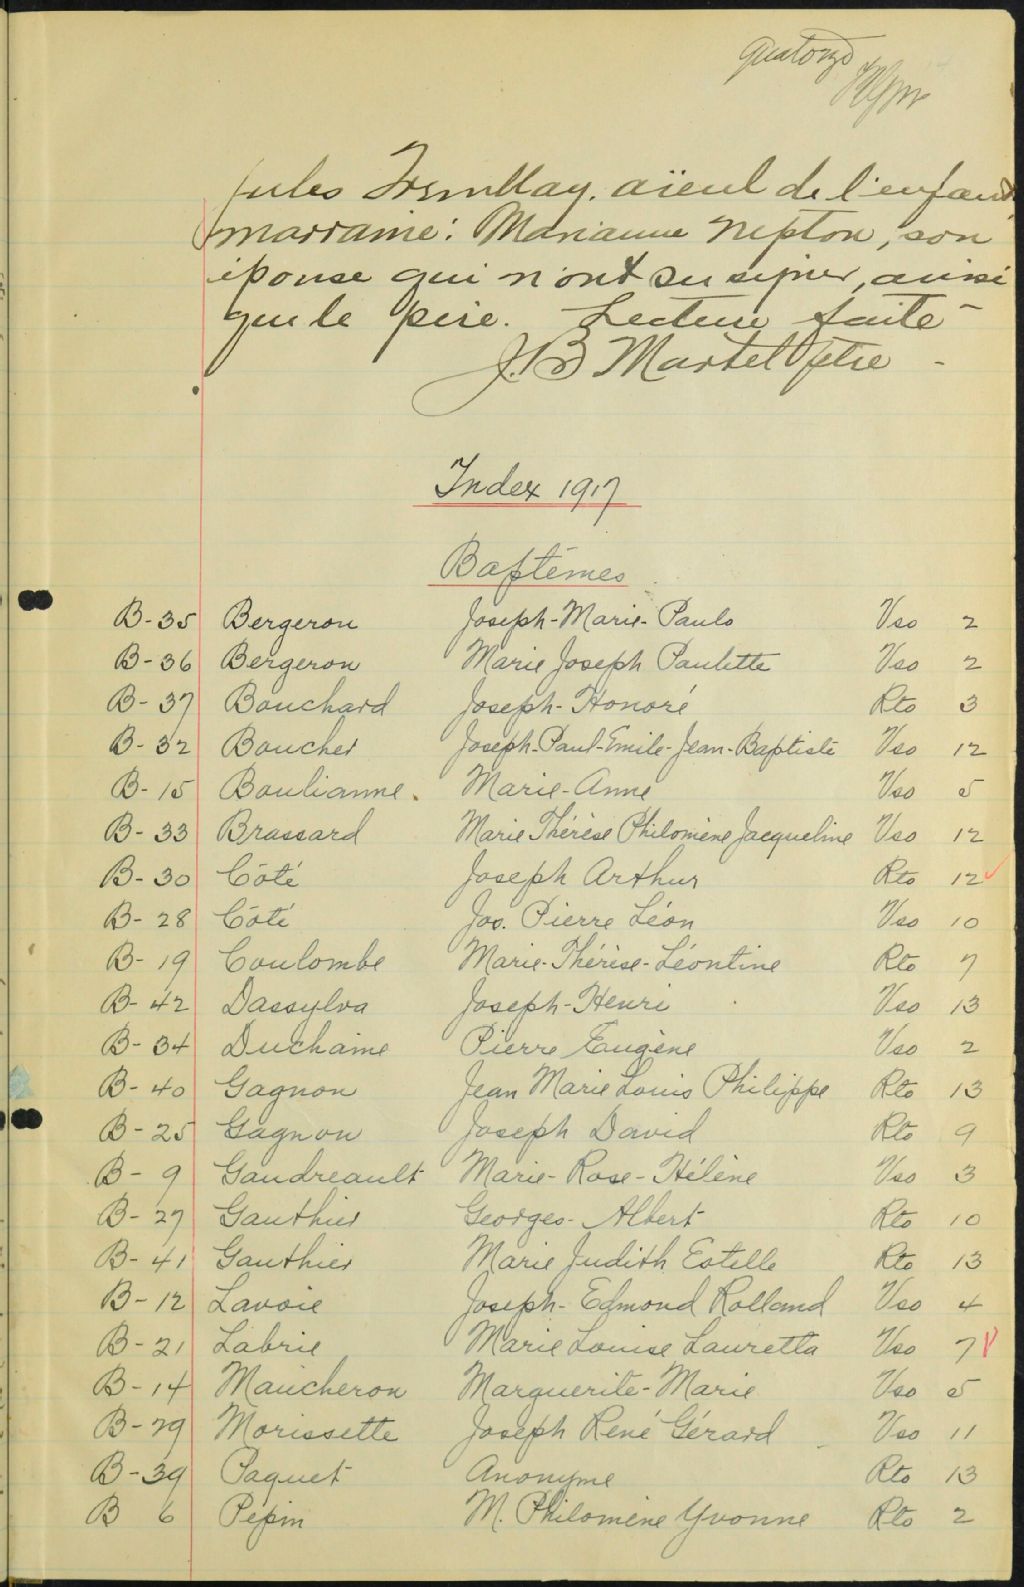 quatorze
Jules Tremblay, aïeul de l'enfant
marraine: Marianne Nepton, son
épouse qui n'ont su signer, ainsi
que le père. Lecture faite -
J.B Martel ptre -
Index 1917
Baptêmes
B-35 Bergeron Joseph-Marie-Paulo Vso 2
B-36 Bergeron Marie Joseph Paulette Vso 2
B-37 Bouchard Joseph-Honoré Rto 3
B-32 Boucher Joseph-Paul-Emile-Jean-Baptiste Vso 12
B-15 Boulianne. Marie-Anne Vso 5
B-33 Brassard Marie Thérèse Philomène Jacqueline Vso 12
B-30 Côté Joseph Arthur Rto 12
B-28 Côté Jos. Pierre Léon Vso 10
B-19 Coulombe Marie-Thérèse-Léontine Rto 7
B-42 Dassylva Joseph-Henri Vso 13
B-34 Duchaine Pierre Eugène Vso 2
B-40 Gagnon Jean Marie Louis Philippe Rto 13
B-25 Gagnon Joseph David Rto 9
B-9 Gaudreault Marie-Rose-Hélène Vso 3
B-27 Gauthier Georges-Albert Rto 10
B-41 Gauthier Marie Judith Estelle Rto 13
B-12 Lavoie Joseph-Edmond Rolland Vso 4
B-21 Labrie Marie Louise Lauretta Vso 7
B-14 Maucheron Marguerite-Marie Vso 5
B-29 Morissette Joseph René Gérard Vso 11
B-39 Paquet Anonyme Rto 13
B 6 Pépin M. Philomène Yvonne Rto 2